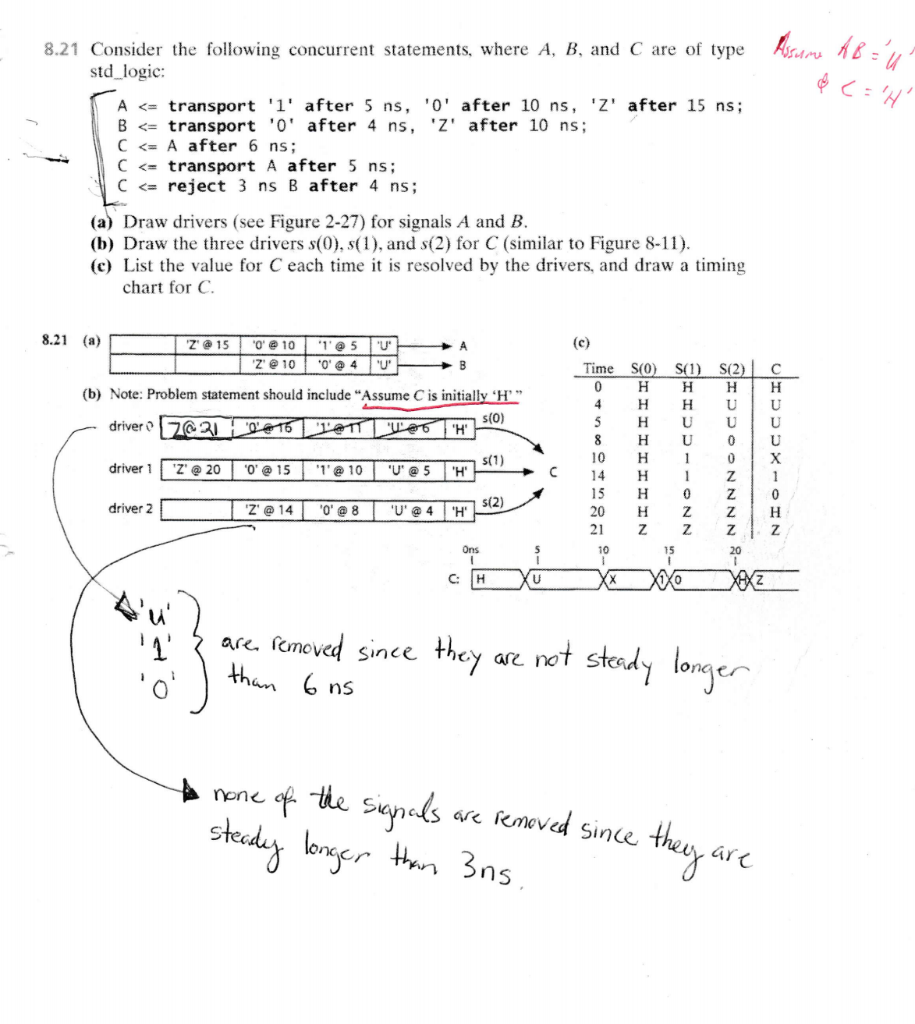 8.21 Consider the following concurrent statements, where A, B, and C are of type
std_logic:
Assume AB = 'U'
& C = 'H'
A <= transport '1' after 5 ns, '0' after 10 ns, 'Z' after 15 ns;
B <= transport '0' after 4 ns, 'Z' after 10 ns;
C <= A after 6 ns;
C <= transport A after 5 ns;
C <= reject 3 ns B after 4 ns;
(a) Draw drivers (see Figure 2-27) for signals A and B.
(b) Draw the three drivers s(0), s(1), and s(2) for C (similar to Figure 8-11).
(c) List the value for C each time it is resolved by the drivers, and draw a timing
chart for C.
8.21 (a)
'Z' @ 15 '0' @ 10 '1' @ 5 'U' A
'Z' @ 10 '0' @ 4 'U' B
(b) Note: Problem statement should include "Assume C is initially 'H'"
driver 0 Z@21 '0' @ 16 '1' @ 11 'U' @ 6 'H' s(0)
driver 1 'Z' @ 20 '0' @ 15 '1' @ 10 'U' @ 5 'H' s(1) C
driver 2 'Z' @ 14 '0' @ 8 'U' @ 4 'H' s(2)
(c)
Time S(0) S(1) S(2) C
0 H H H H
4 H H U U
5 H U U U
8 H U 0 U
10 H 1 0 X
14 H 1 Z 1
15 H 0 Z 0
20 H Z Z H
21 Z Z Z Z
0ns 5 10 15 20
C: H U X 1 0 H Z
'U'
'1'
'0'
are removed since they are not steady longer
than 6 ns
none of the signals are removed since they are
steady longer than 3ns.